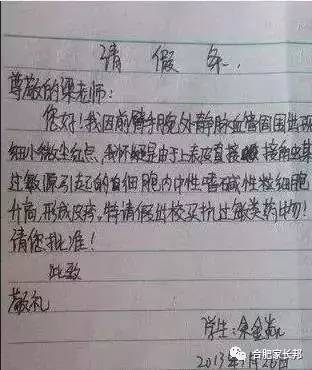 请假条
尊敬的梁老师:
您好!我因前臂手腕外静脉血管周围出现
细小微尘红点,我怀疑是由于上表皮直接接触某
过敏源引起的白细胞内中性嗜碱性粒细胞
升高,形成皮疹。特请假出校买抗过敏类药物!
请您批准!
此致
敬礼
学生:余金
2013年1月26日
合肥家长邦